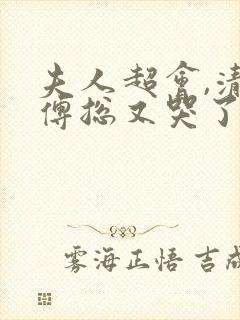 夫人超會,清
傅总又哭了
雾海正悟 吉成